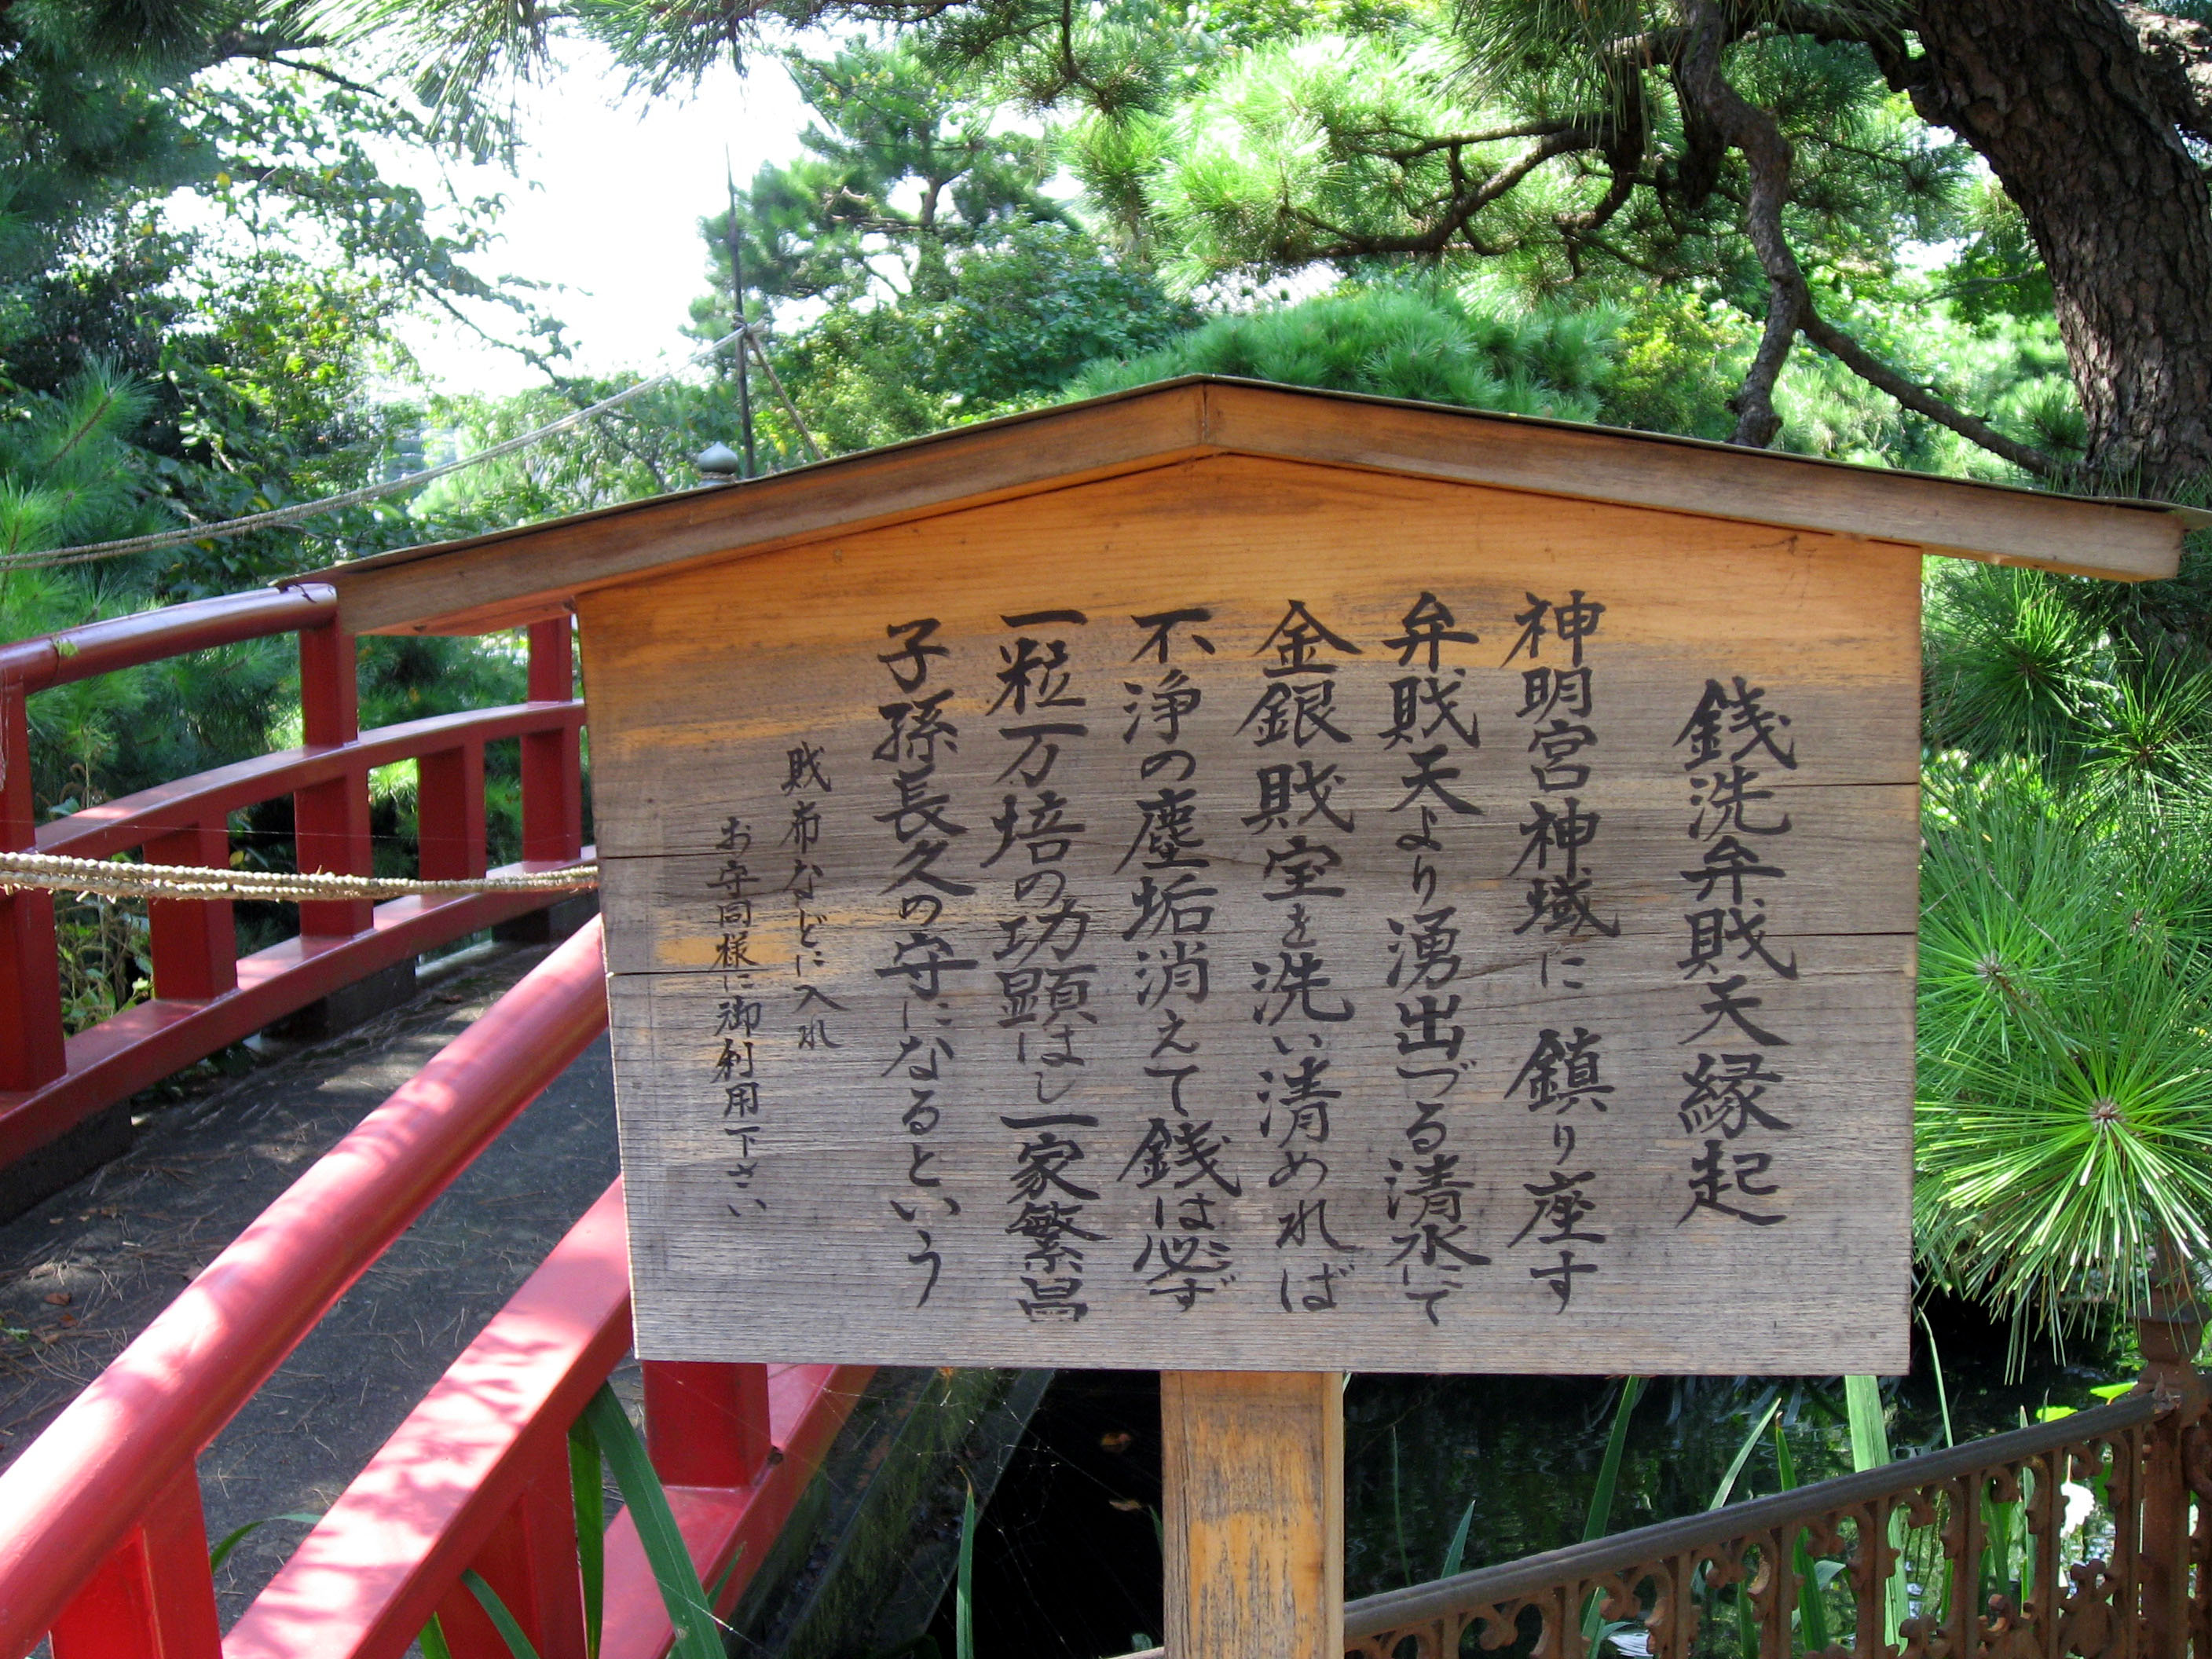 銭洗弁財天縁起
神明宮神域に 鎮り座す
弁財天より湧出づる清水にて
金銀財宝を洗い清めれば
不浄の塵垢消えて銭は必ず
一粒万培の功顕はし一家繁昌
子孫長久の守になるという
財布などに入れ
お守同様に御利用下さい